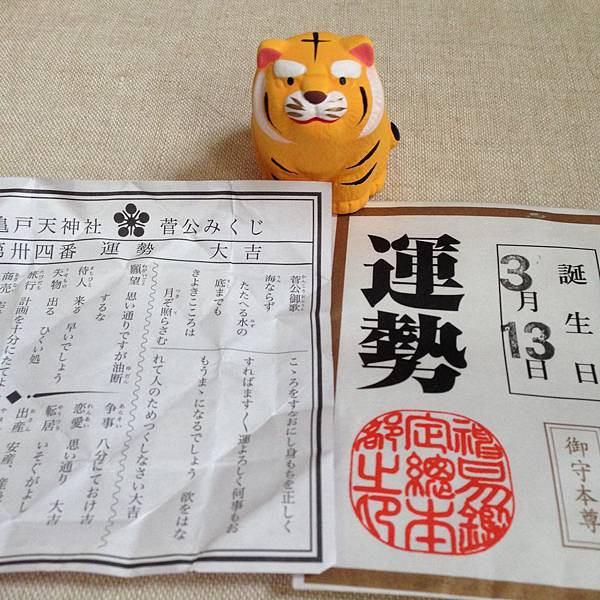 亀戸天神社 菅公みくじ
第卅四番 運勢 大吉
菅公御歌
海ならず
たたへる水の
底までも
きよきこころは
月ぞ照らさむ
願望 思い通りですが油断
するな
待人 来る 早いでしょう
失物 出る ひくい処
旅行 計画を十分にたてよ
商売
こゝろをすなおにし身もちを正しく
すればます〱運よろしく何事もお
もうまゝになるでしょう 欲をはな
れて人のためつくしなさい大吉
争事 八分にておけ吉
恋愛 思い通り 大吉
転居 いそぐがよし
出産 安産、
誕生日
3月13日
運勢
御守本尊